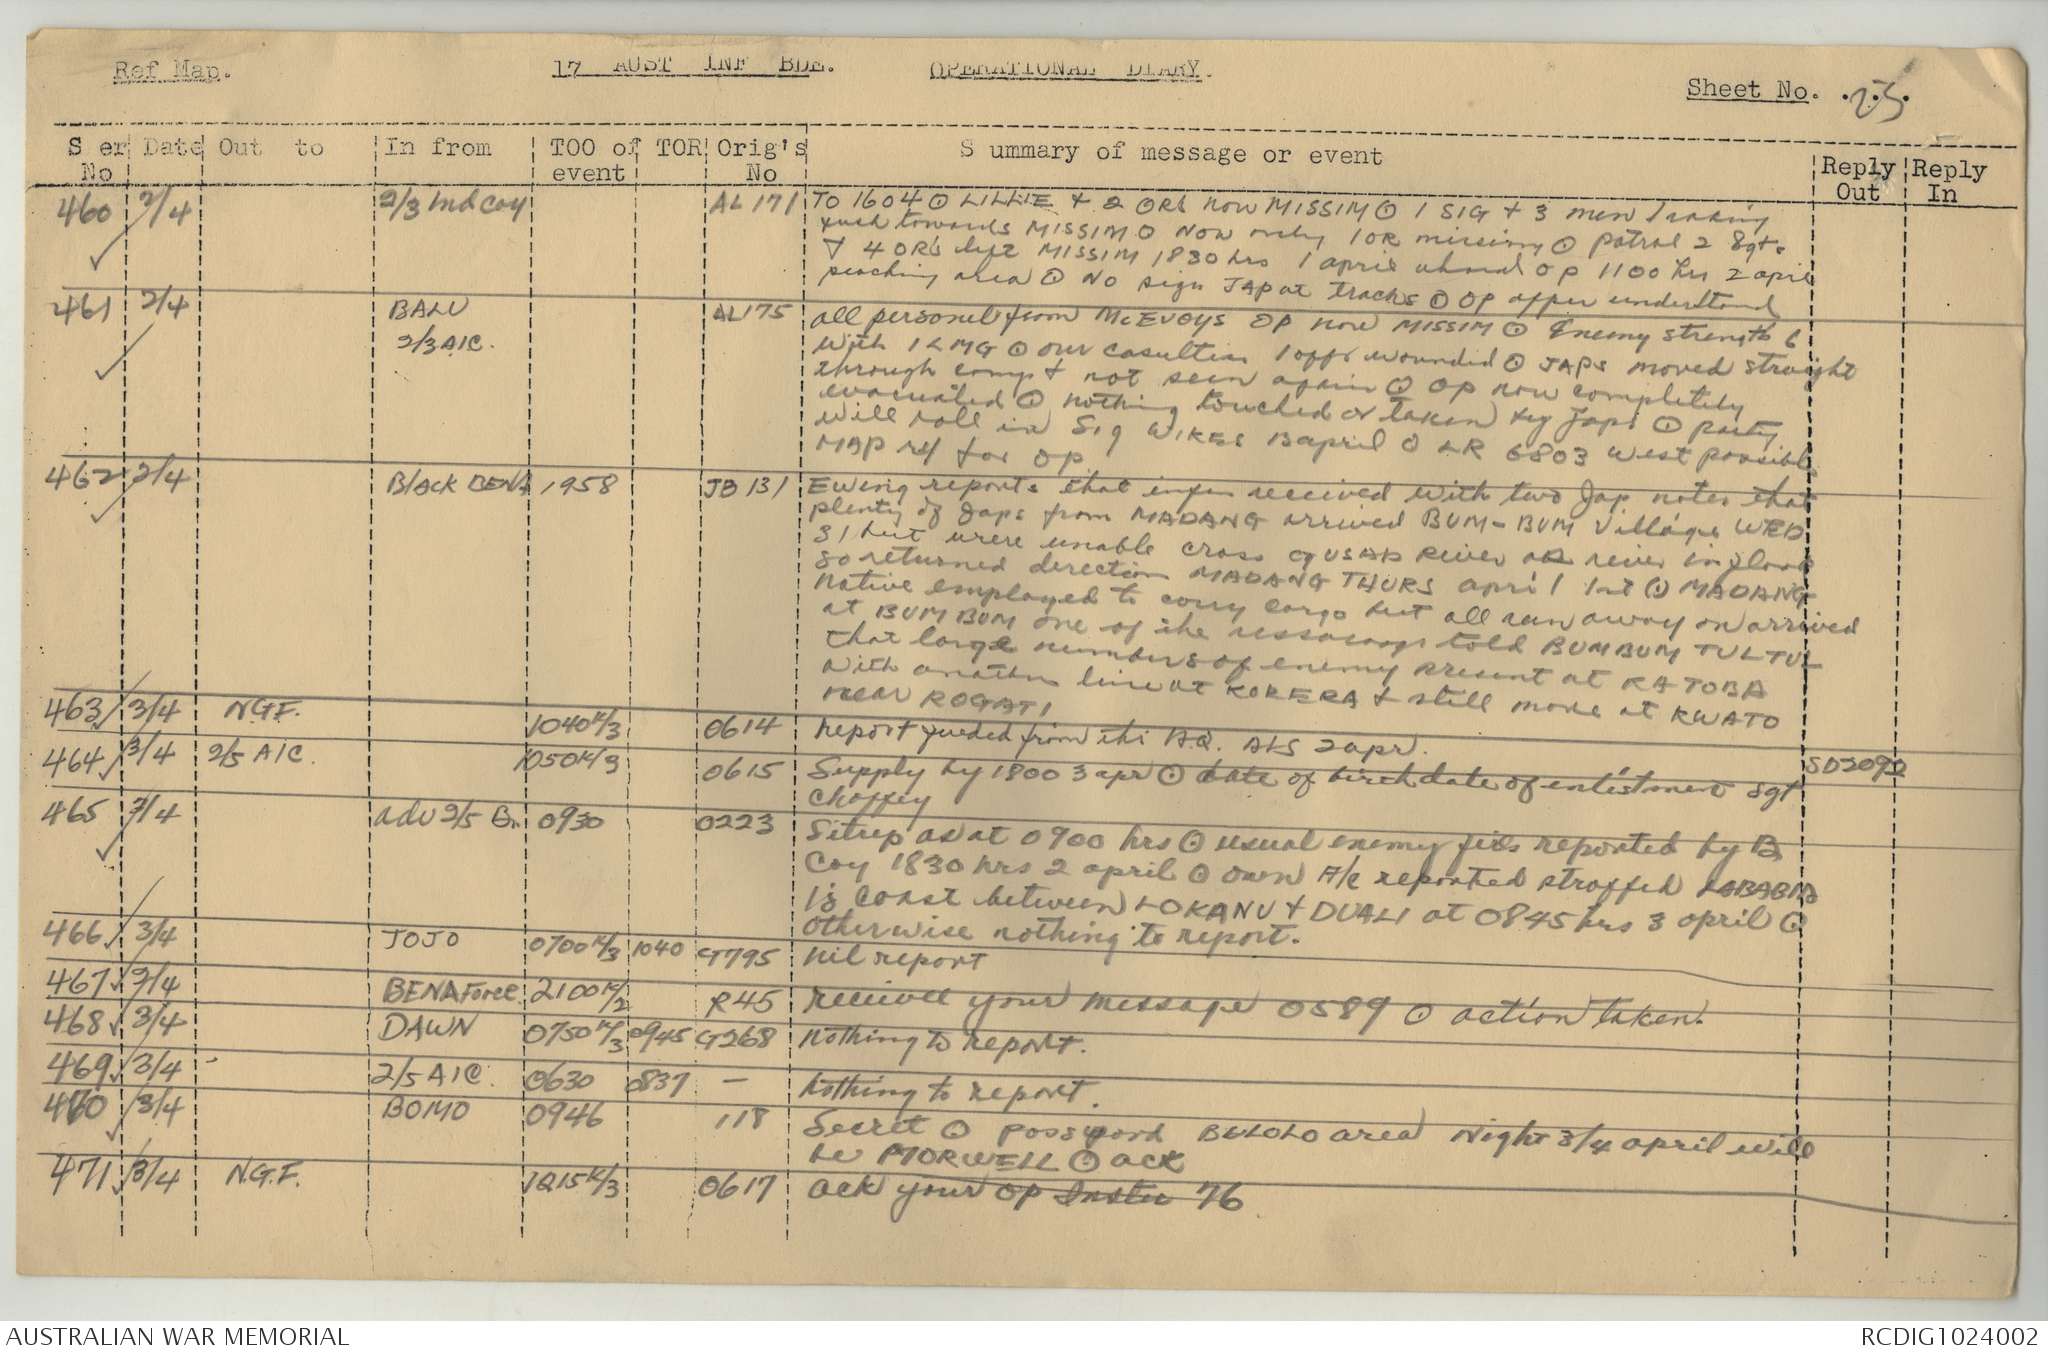 Ref Map. 17 AUST INF BDE. OPERATIONAL DIARY.
Sheet No. 25.
Ser No Date Out to In from TOO of event TOR Orig's No Summary of message or event Reply Out Reply In
460 2/4 2/3 Ind Coy AL 171 To 1604 ⊙ LILLIE + 2 ORs now MISSIM ⊙ 1 SIG + 3 men making
push towards MISSIM ⊙ Now only 1 OR missing ⊙ Patrol 2 Sgts
+ 4 OR's left MISSIM 1830 hrs 1 april OP 1100 hrs 2 april
area ⊙ No sign JAP at tracks ⊙ OP understand
461 2/4 BALU 2/3 AIC. AL 175 all personel from McEVOYS OP now MISSIM ⊙ Enemy strength 6
with 1 LMG ⊙ our casulties 1 offr wounded ⊙ JAPS moved straight
through camp + not seen again ⊙ OP now completely
evacuated ⊙ nothing touched or taken by Japs ⊙ party
will roll in Sig WIKES april ⊙ LR 6803 west possible
MAP ref for OP
462 2/4 BlACK BENA 1958 JB 131 Ewing reports that infm received with two Jap notes that
plenty of Japs from MADANG arrived BUM-BUM Village WED
31 but were unable cross GUSAP River as river in flood
so returned direction MADANG THURS apri 1 1st ⊙ MADANG
native employed to carry cargo but all ran away on arrived
at BUM BUM one of the told BUMBUM TULTUL
that large numbers of enemy present at KATOBA
with another line at KOKERA + still more at KWATO
near ROGATI
463 3/4 N.G.F. 1040K/3 0614 Report from this H.Q. ALS 2 apr.
464 3/4 2/5 AIC. 1050K/3 0615 Supply by 1800 3 apr ⊙ date of birth date of enlistment Sgt SD2092
Chaffey
465 3/4 adv 2/5 Bn 0930 0223 Sitrep as at 0900 hrs ⊙ usual enemy fires reported by B
Coy 1830 hrs 2 april ⊙ own A/C reported straffed LABABIA
Is coast between LOKANU + DUALI at 0845 hrs 3 april ⊙
otherwise nothing to report.
466 3/4 JOJO 0700K/3 1040 G795 nil report
467 3/4 BENAForce 2100K/2 R45 received your message 0589 ⊙ action taken.
468 3/4 DAWN 0750K/3 0945 G268 nothing to report.
469 3/4 2/5 AIC. 0630 0837 — nothing to report.
470 3/4 BOMO 0946 118 Secret ⊙ password BULOLO area Night 3/4 april will
be MORWELL ⊙ ack
471 3/4 N.G.F. 1215K/3 0617 ack your OP Instn 76
AUSTRALIAN WAR MEMORIAL RCDIG1024002